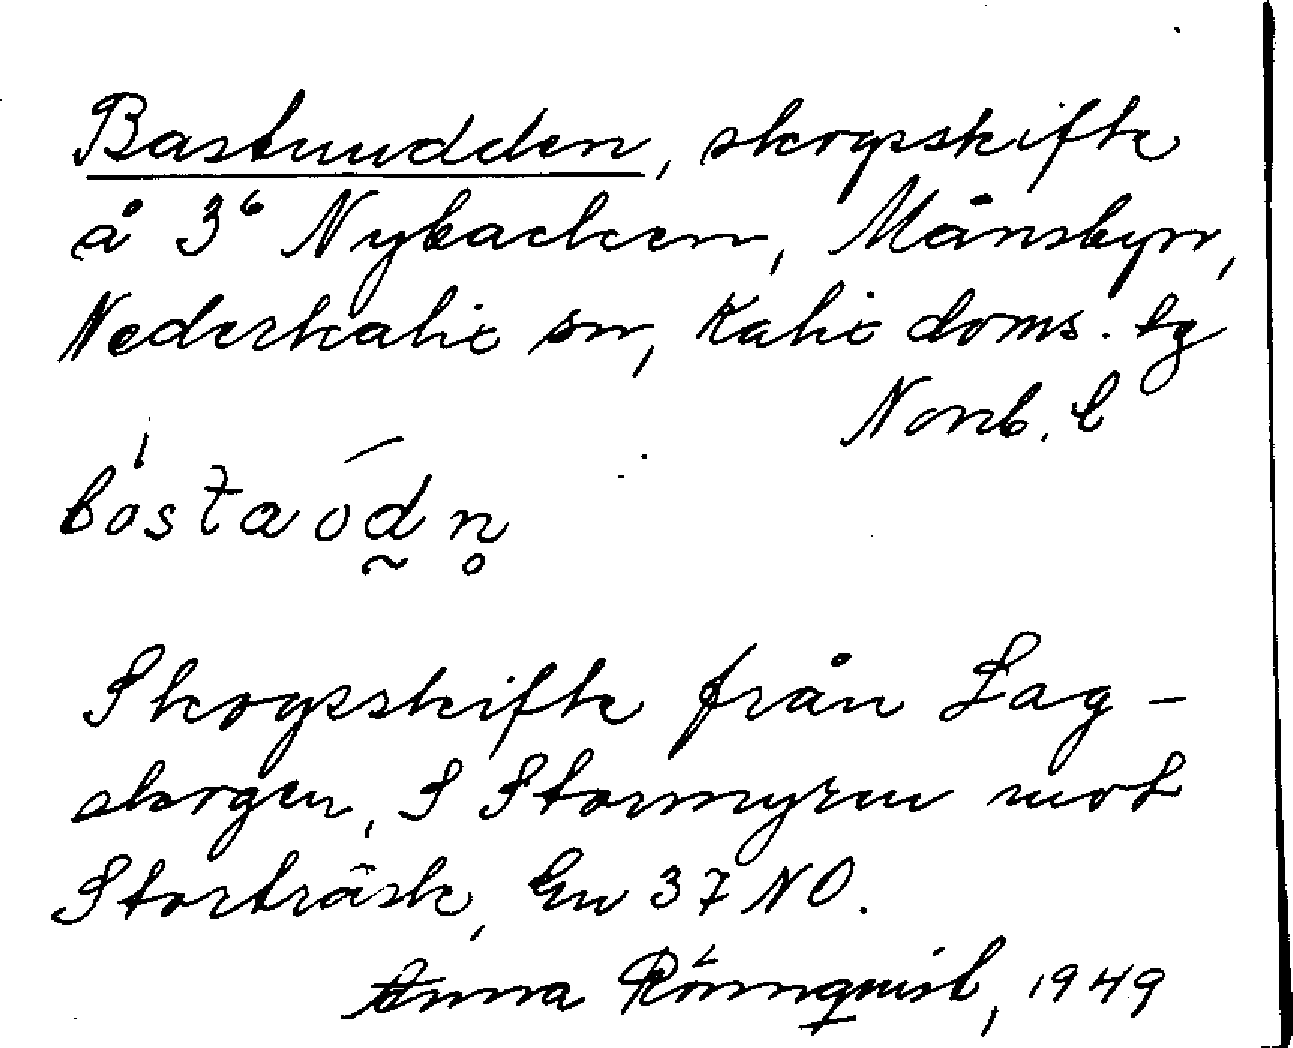 Bastuudden, skogsskifte
å 3⁶ Nybacken, Månsbyn,
Nederkalix sn, Kalix doms. tg
Norrb. l
bòstaodn̥
Skogsskifte från Lag-
skogen, S Stormyren mot
Storträsk, En 37 NO.
Anna Rönnquist, 1949